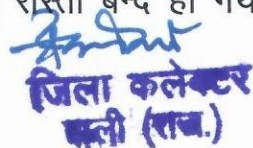 रास्ता बन्द हो गय
जिला कलेक्टर
पाली (राज.)